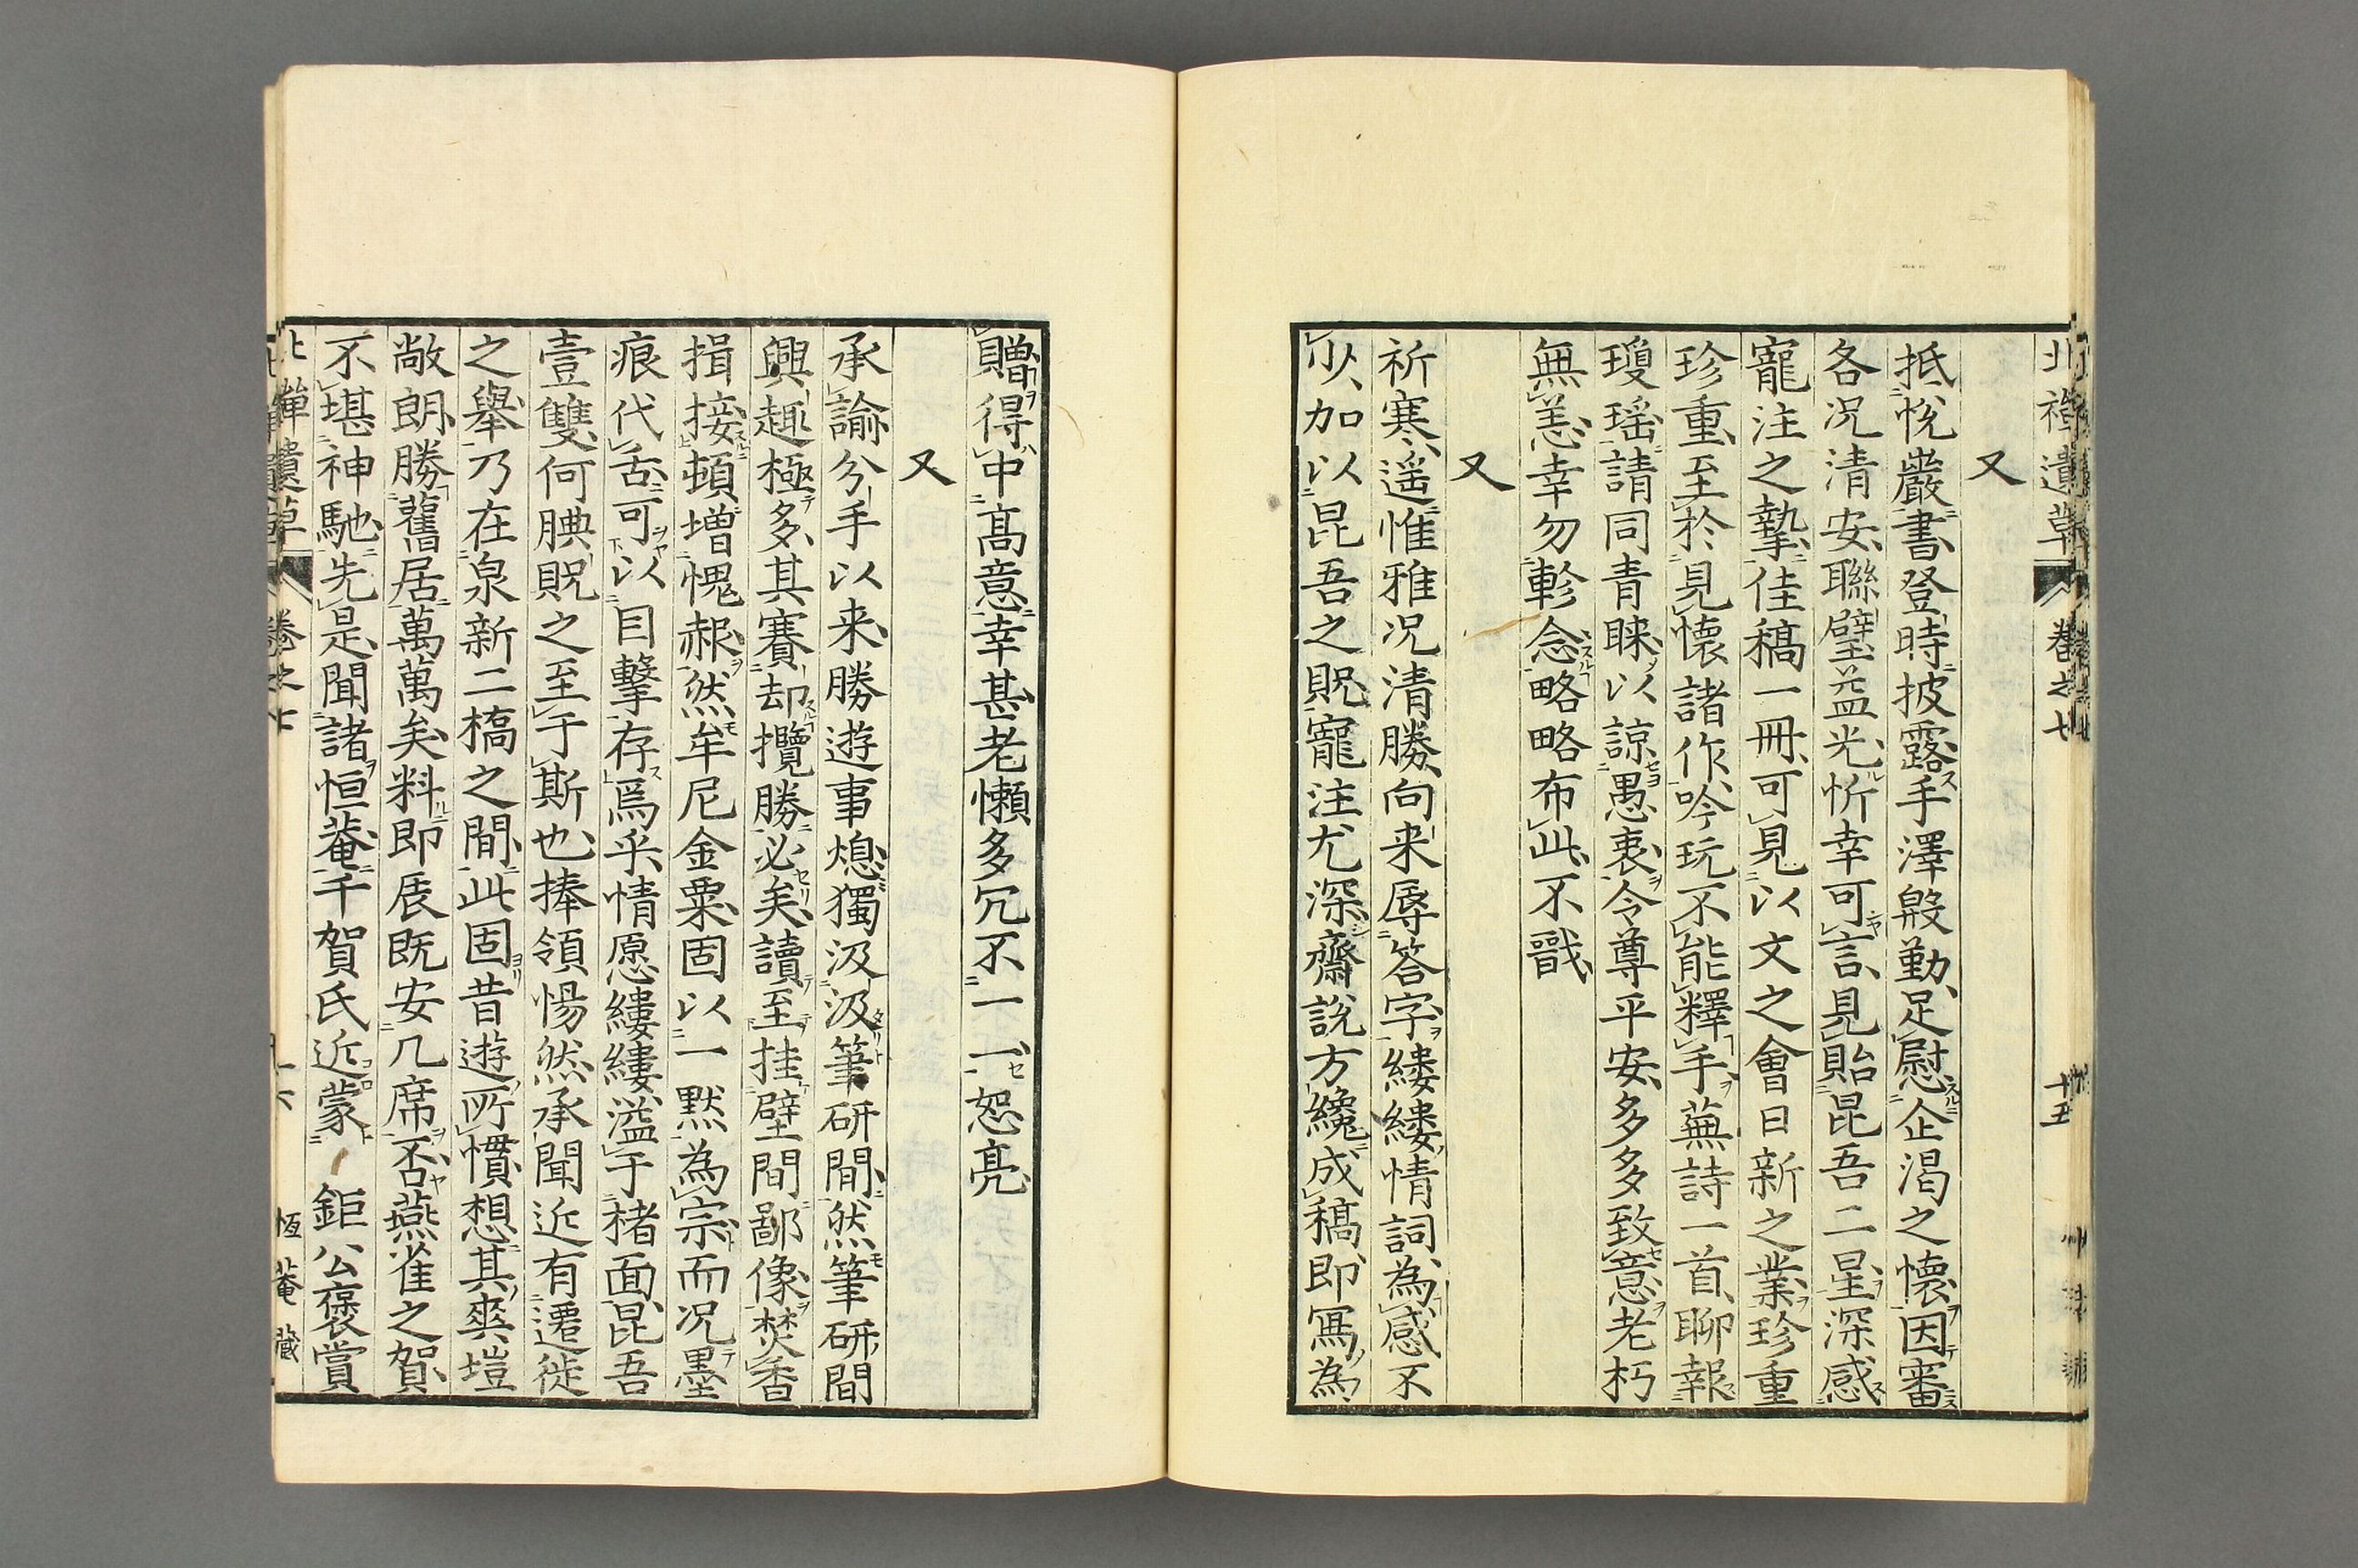 北禪遺草 卷之七 十五
又
抵悅巖書登時披露手澤殷勤足慰企渴之懷因審
各况清安聯璧益光忻幸可言見貽昆吾二星深感
寵注之摯佳稿一冊可見以文之會日新之業珍重
珍重至於見懷諸作吟玩不能釋手蕪詩一首聊報
瓊瑤請同青睞以諒愚衷令尊平安多多致意老朽
無恙幸勿軫念略略布此不戩
又
祈寒遥惟雅况清勝向来辱答字縷縷情詞為感不
少加以昆吾之貺寵注尤深齋說方纔成稿即寫為
贈得中高意幸甚老懶多冗不一一恕亮
又
承諭分手以来勝遊事熄獨汲汲筆研間然筆研間
興趣極多其賽却攬勝必矣讀至挂壁間鄙像焚香
揖接頓增愧赧然牟尼金粟固以一默為宗而况墨
痕代舌可以目擊存焉乎情愿縷縷溢于楮面昆吾
壹雙何腆貺之至于斯也捧領惕然承聞近有遷徙
之舉乃在泉新二橋之間此固昔遊所慣想其爽塏
敞朗勝舊居萬萬矣料即辰既安几席否燕雀之賀
不堪神馳先是聞諸恒菴千賀氏近蒙 鉅公褒賞
北禪遺草 卷之七 十六 恆菴藏